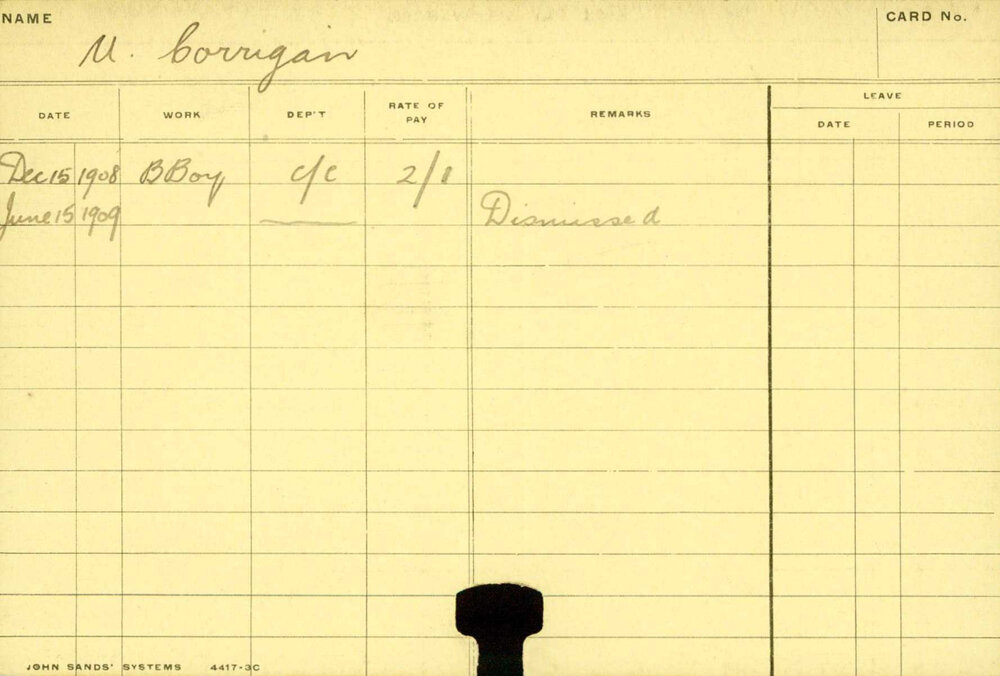 NAME
M. Corrigan
CARD No.
DATE WORK DEP'T RATE OF PAY REMARKS LEAVE
DATE PERIOD
Dec 15 1908 BBoy C/C 2/1
June 15 1909 Dismissed
JOHN SANDS' SYSTEMS 4417-3C